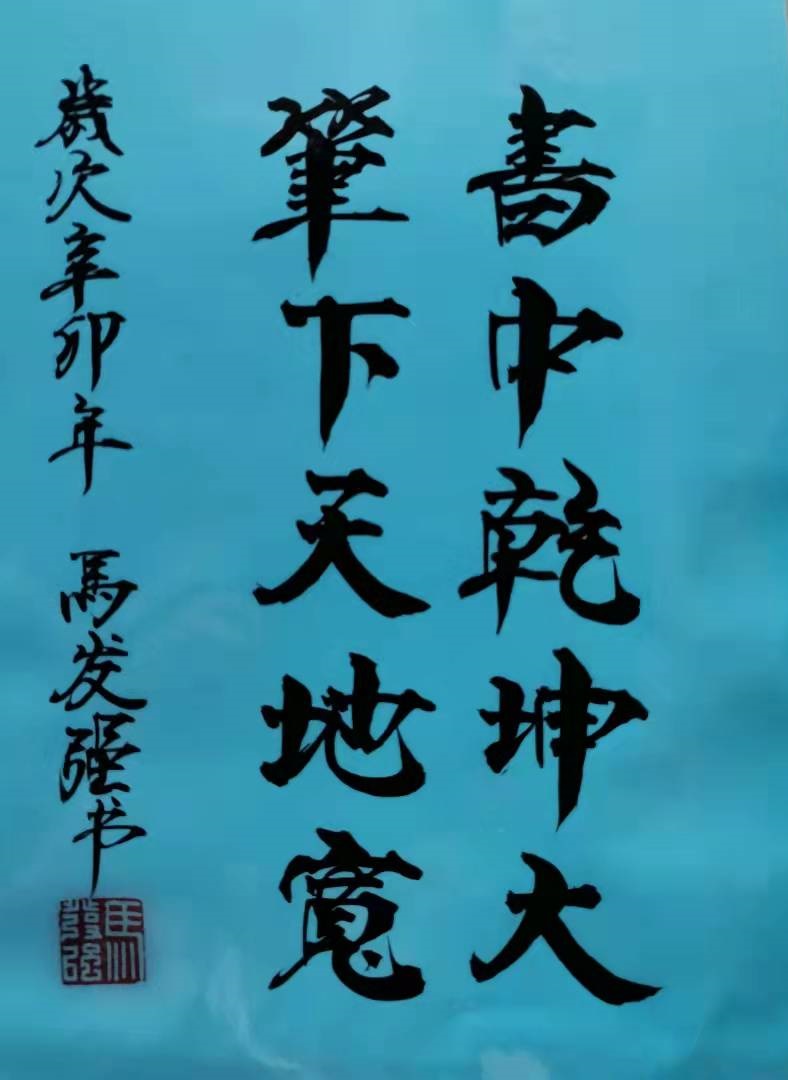 書中乾坤大
筆下天地寬
歲次辛卯年 馬发强书
馬發强